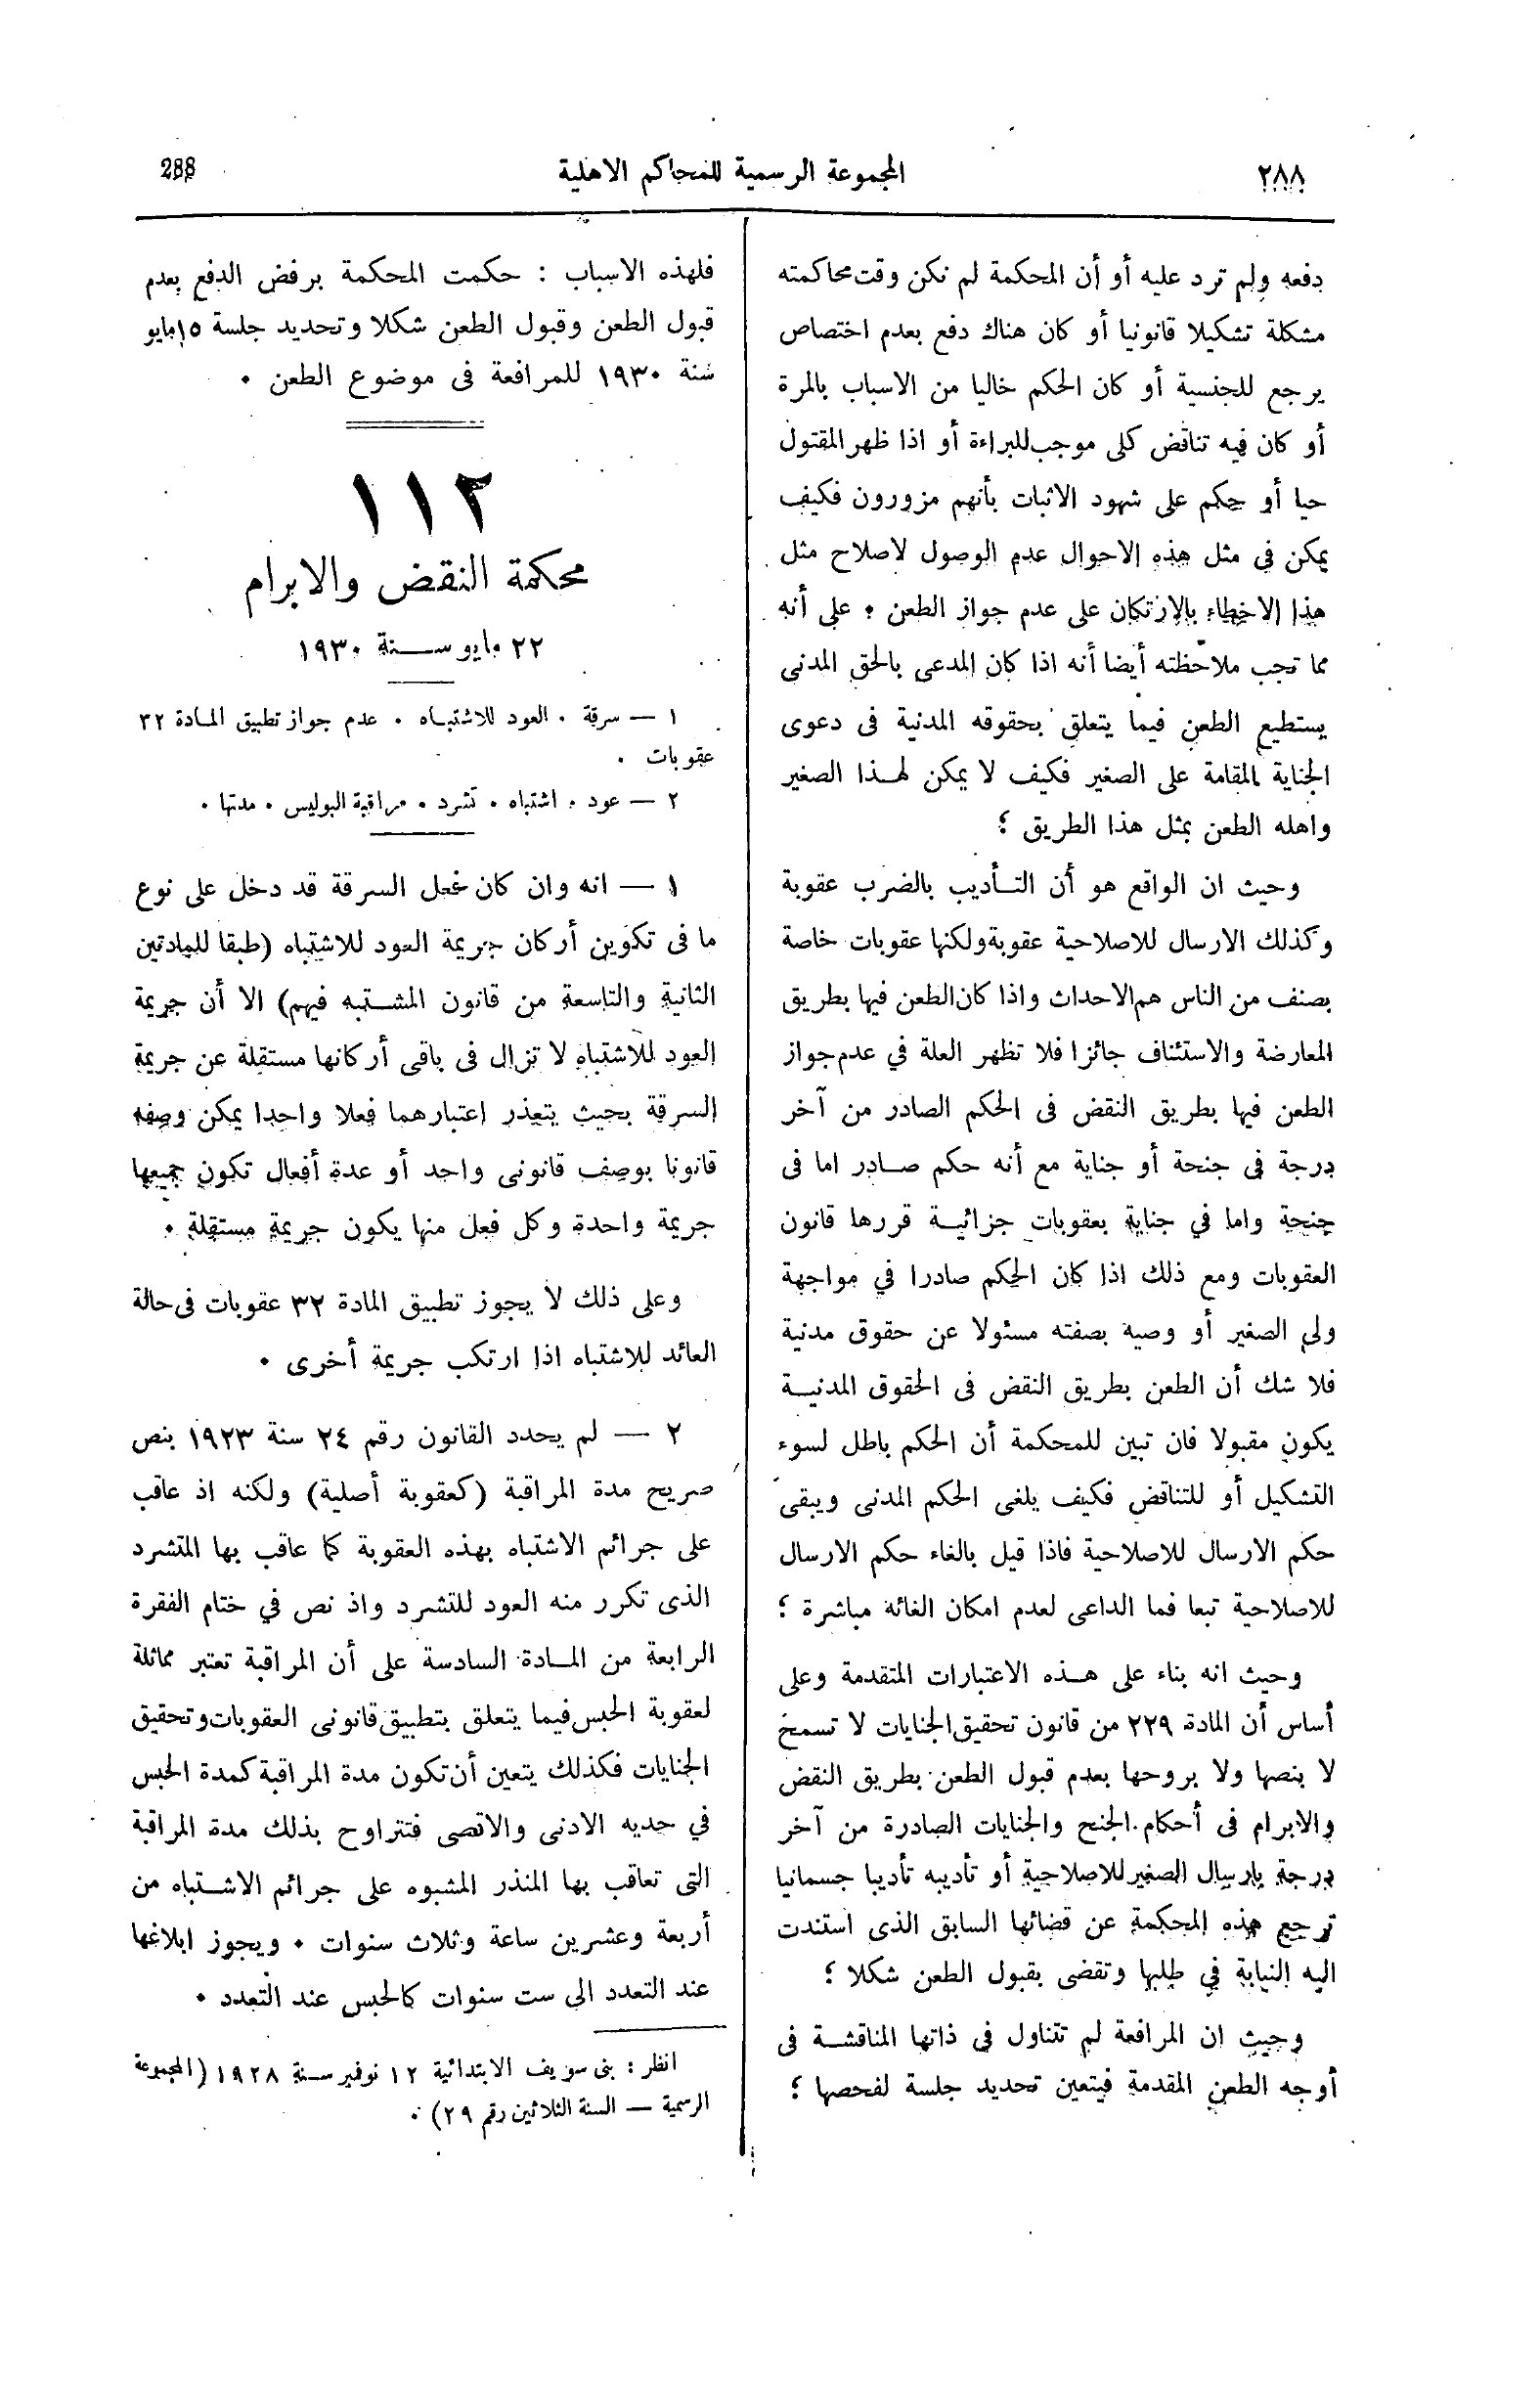 ٢٨٨
المجموعة الرسمية للمحاكم الاهلية
288
دفعه ولم ترد عليه أو أن المحكمة لم تكن وقت محاكمته
مشكلة تشكيلا قانونيا أو كان هناك دفع بعدم اختصاص
يرجع للجنسية أو كان الحكم خاليا من الاسباب بالمرة
أو كان فيه تناقض كلى موجب للبراءة أو اذا ظهر المقتول
حيا أو حكم على شهود الاثبات بأنهم مزورون فكيف
يمكن فى مثل هذه الاحوال عدم الوصول لاصلاح مثل
هذا الاخطاء بالارتكان على عدم جواز الطعن ٠ على أنه
مما تجب ملاحظته أيضا أنه اذا كان المدعى بالحق المدنى
يستطيع الطعن فيما يتعلق بحقوقه المدنية فى دعوى
الجناية المقامة على الصغير فكيف لا يمكن لهذا الصغير
واهله الطعن بمثل هذا الطريق ؛
وحيث ان الواقع هو أن التأديب بالضرب عقوبة
وكذلك الارسال للاصلاحية عقوبة ولكنها عقوبات خاصة
بصنف من الناس هم الاحداث واذا كان الطعن فيها بطريق
المعارضة والاستئناف جائزا فلا تظهر العلة في عدم جواز
الطعن فيها بطريق النقض فى الحكم الصادر من آخر
درجة فى جنحة أو جناية مع أنه حكم صادر اما فى
جنحة واما في جناية بعقوبات جزائية قررها قانون
العقوبات ومع ذلك اذا كان الحكم صادرا في مواجهة
ولى الصغير أو وصيه بصفته مسئولا عن حقوق مدنية
فلا شك أن الطعن بطريق النقض فى الحقوق المدنية
يكون مقبولا فان تبين للمحكمة أن الحكم باطل لسوء
التشكيل أو للتناقض فكيف يلغى الحكم المدنى ويبقى
حكم الارسال للاصلاحية فاذا قيل بالغاء حكم الارسال
للاصلاحية تبعا فما الداعى لعدم امكان الغائه مباشرة ؛
وحيث انه بناء على هذه الاعتبارات المتقدمة وعلى
أساس أن المادة ٢٢٩ من قانون تحقيق الجنايات لا تسمح
لا بنصها ولا بروحها بعدم قبول الطعن بطريق النقض
والابرام فى أحكام الجنح والجنايات الصادرة من آخر
درجة بارسال الصغير للاصلاحية أو تأديبه تأديبا جسمانيا
ترجع هذه المحكمة عن قضائها السابق الذى استندت
اليه النيابة في طلبها وتقضى بقبول الطعن شكلا ؛
وحيث ان المرافعة لم تتناول فى ذاتها المناقشة فى
أوجه الطعن المقدمة فيتعين تحديد جلسة لفحصها ؛
فلهذه الاسباب : حكمت المحكمة برفض الدفع بعدم
قبول الطعن وقبول الطعن شكلا وتحديد جلسة ١٥ مايو
سنة ١٩٣٠ للمرافعة فى موضوع الطعن ٠
١١٢
محكمة النقض والابرام
٢٢ مايو سنة ١٩٣٠
١ — سرقة ٠ العود للاشتباه ٠ عدم جواز تطبيق المادة ٣٢
عقوبات ٠
٢ — عود ٠ اشتباه ٠ تشرد ٠ مراقبة البوليس ٠ مدتها ٠
١ — انه وان كان فعل السرقة قد دخل على نوع
ما فى تكوين أركان جريمة العود للاشتباه (طبقا للمادتين
الثانية والتاسعة من قانون المشتبه فيهم) الا أن جريمة
العود للاشتباه لا تزال فى باقى أركانها مستقلة عن جريمة
السرقة بحيث يتعذر اعتبارهما فعلا واحدا يمكن وصفه
قانونا بوصف قانونى واحد أو عدة أفعال تكون جميعها
جريمة واحدة وكل فعل منها يكون جريمة مستقلة ٠
وعلى ذلك لا يجوز تطبيق المادة ٣٢ عقوبات فى حالة
العائد للاشتباه اذا ارتكب جريمة أخرى ٠
٢ — لم يحدد القانون رقم ٢٤ سنة ١٩٢٣ بنص
صريح مدة المراقبة (كعقوبة أصلية) ولكنه اذ عاقب
على جرائم الاشتباه بهذه العقوبة كما عاقب بها المتشرد
الذى تكرر منه العود للتشرد واذ نص في ختام الفقرة
الرابعة من المادة السادسة على أن المراقبة تعتبر مماثلة
لعقوبة الحبس فيما يتعلق بتطبيق قانونى العقوبات وتحقيق
الجنايات فكذلك يتعين أن تكون مدة المراقبة كمدة الحبس
في حديه الادنى والاقصى فتتراوح بذلك مدة المراقبة
التى تعاقب بها المنذر المشبوه على جرائم الاشتباه من
أربعة وعشرين ساعة وثلاث سنوات ٠ ويجوز ابلاغها
عند التعدد الى ست سنوات كالحبس عند التعدد ٠
انظر : بنى سويف الابتدائية ١٢ نوفمبر سنة ١٩٢٨ (المجموعة
الرسمية — السنة الثلاثين رقم ٢٩) ٠